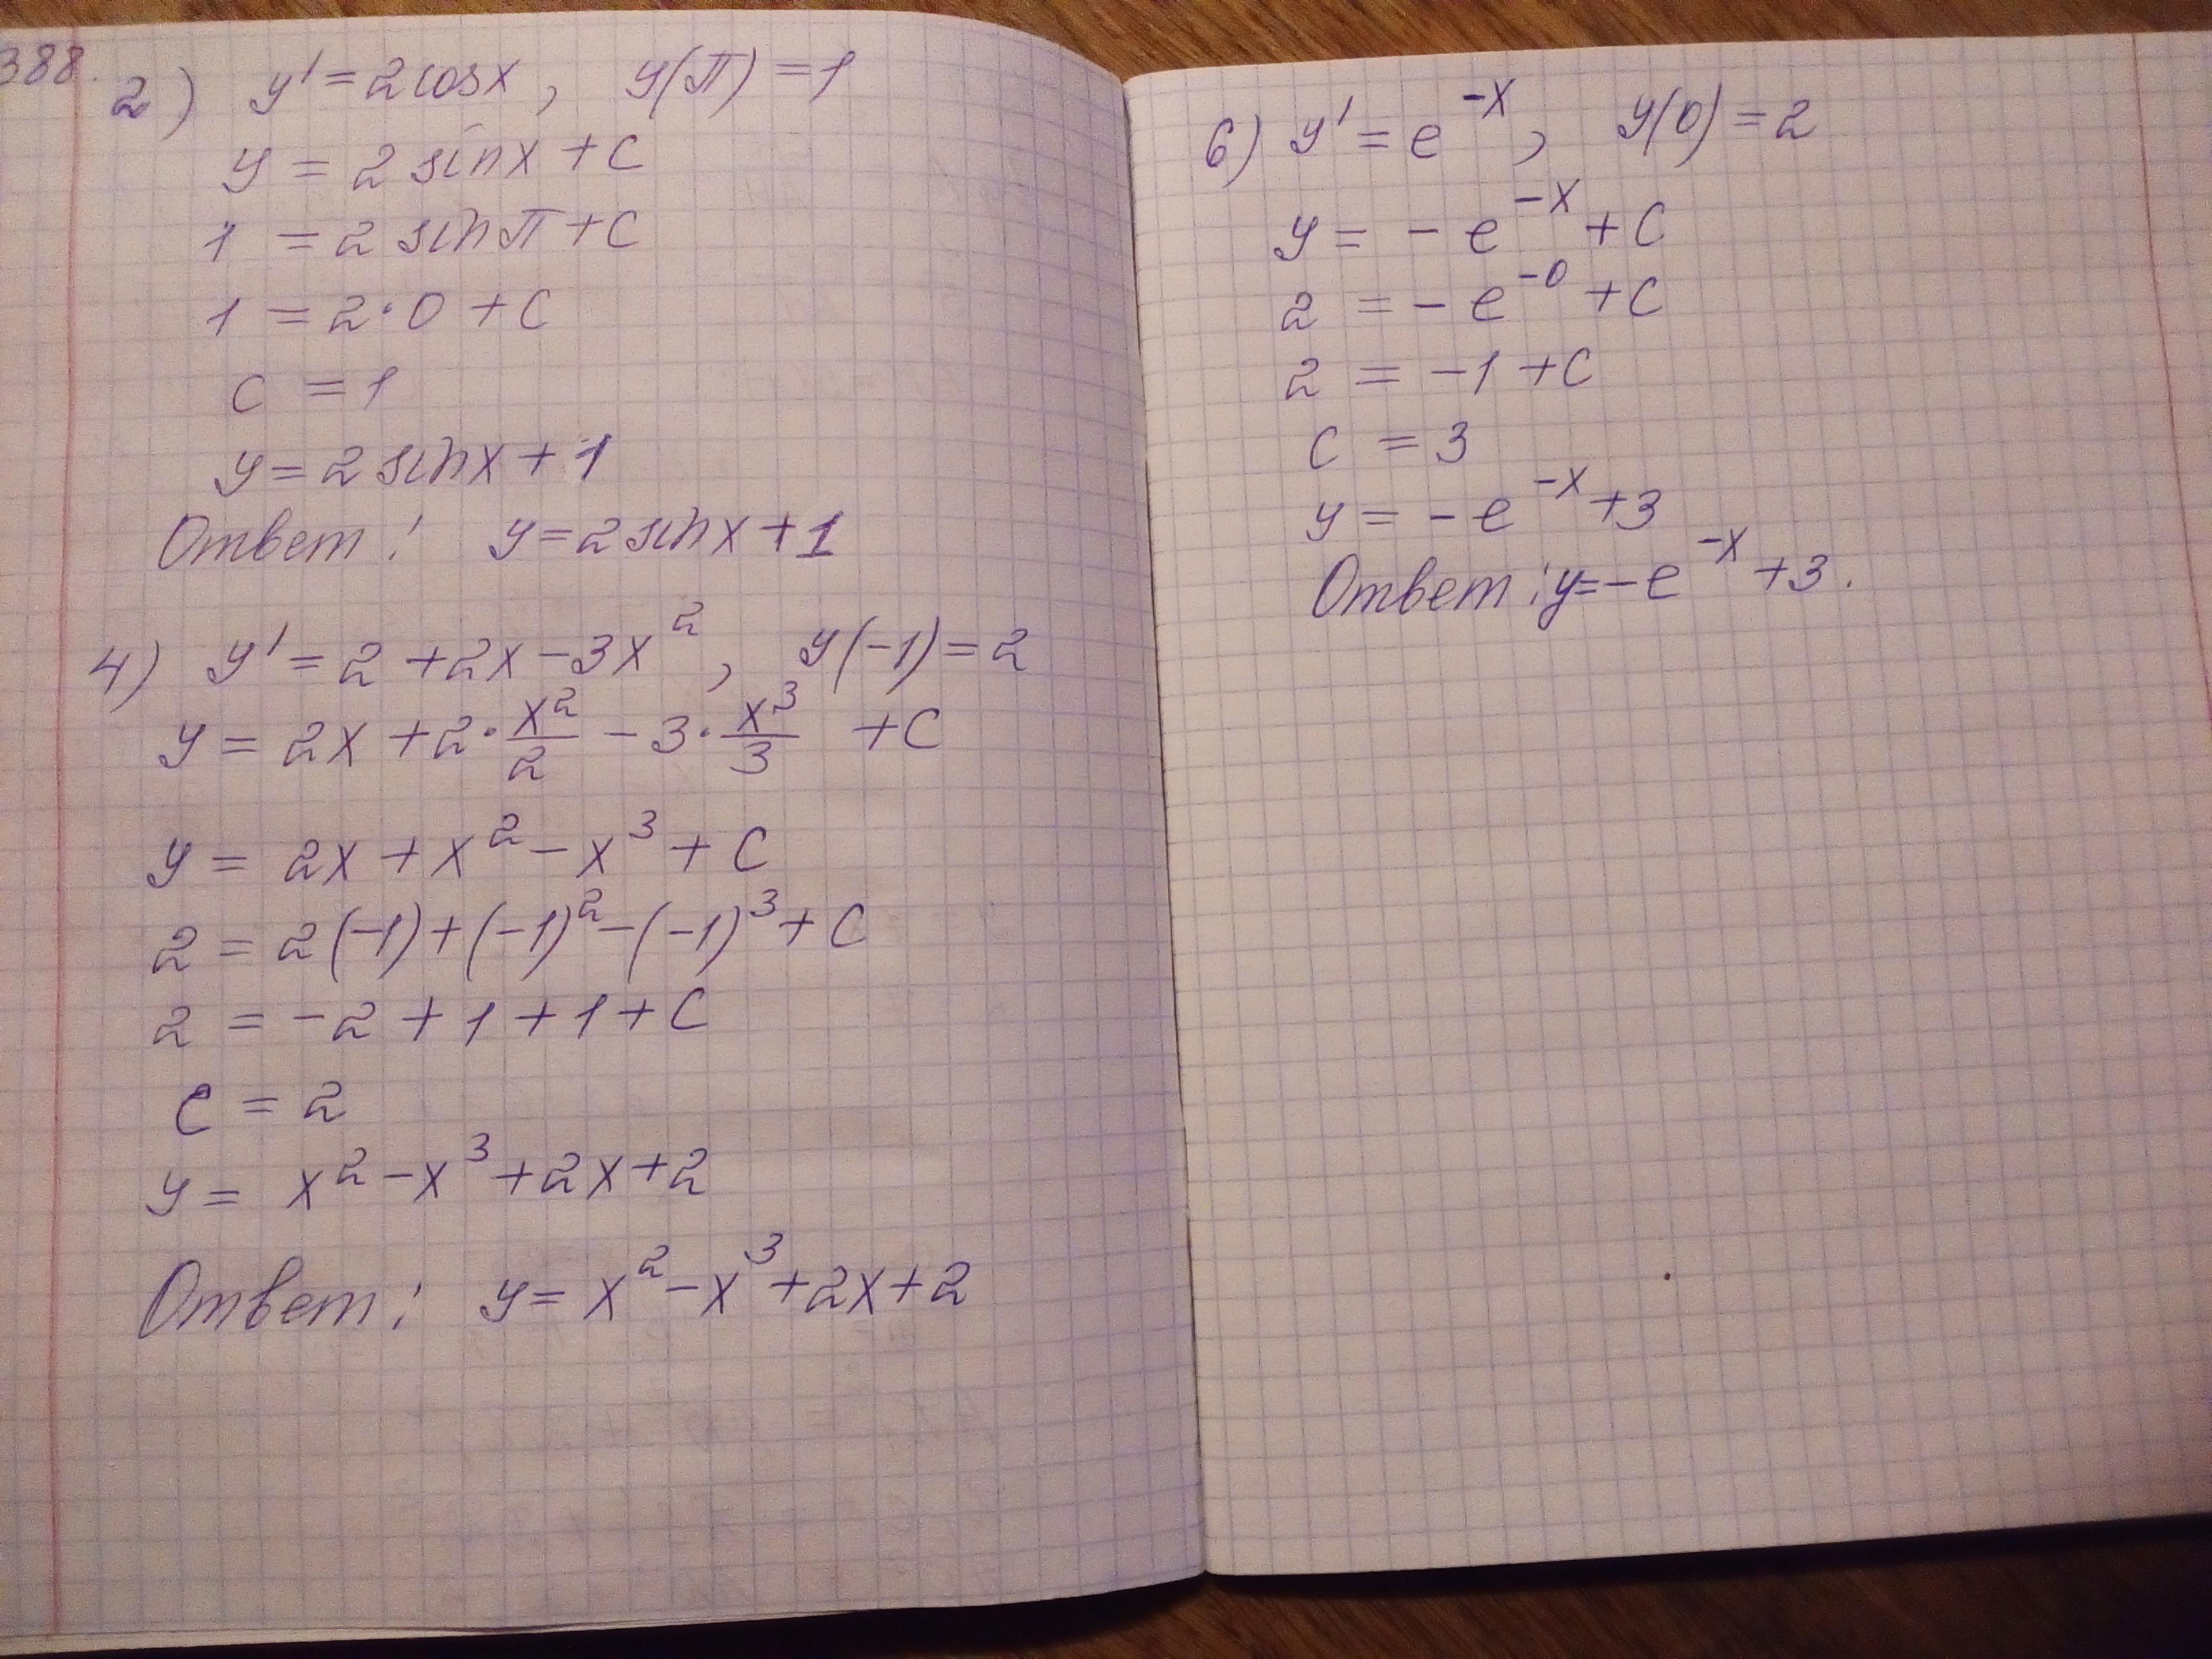 388.
2) y' = 2cosx, y(π) = 1
y = 2 sinx + C
1 = 2 sinπ + C
1 = 2·0 + C
C = 1
y = 2 sinx + 1
Ответ: y = 2 sinx + 1
4) y' = 2 + 2x - 3x², y(-1) = 2
y = 2x + 2·x²/2 - 3·x³/3 + C
y = 2x + x² - x³ + C
2 = 2(-1) + (-1)² - (-1)³ + C
2 = -2 + 1 + 1 + C
C = 2
y = x² - x³ + 2x + 2
Ответ: y = x² - x³ + 2x + 2
6) y' = e⁻ˣ, y(0) = 2
y = -e⁻ˣ + C
2 = -e⁻⁰ + C
2 = -1 + C
C = 3
y = -e⁻ˣ + 3
Ответ: y = -e⁻ˣ + 3.